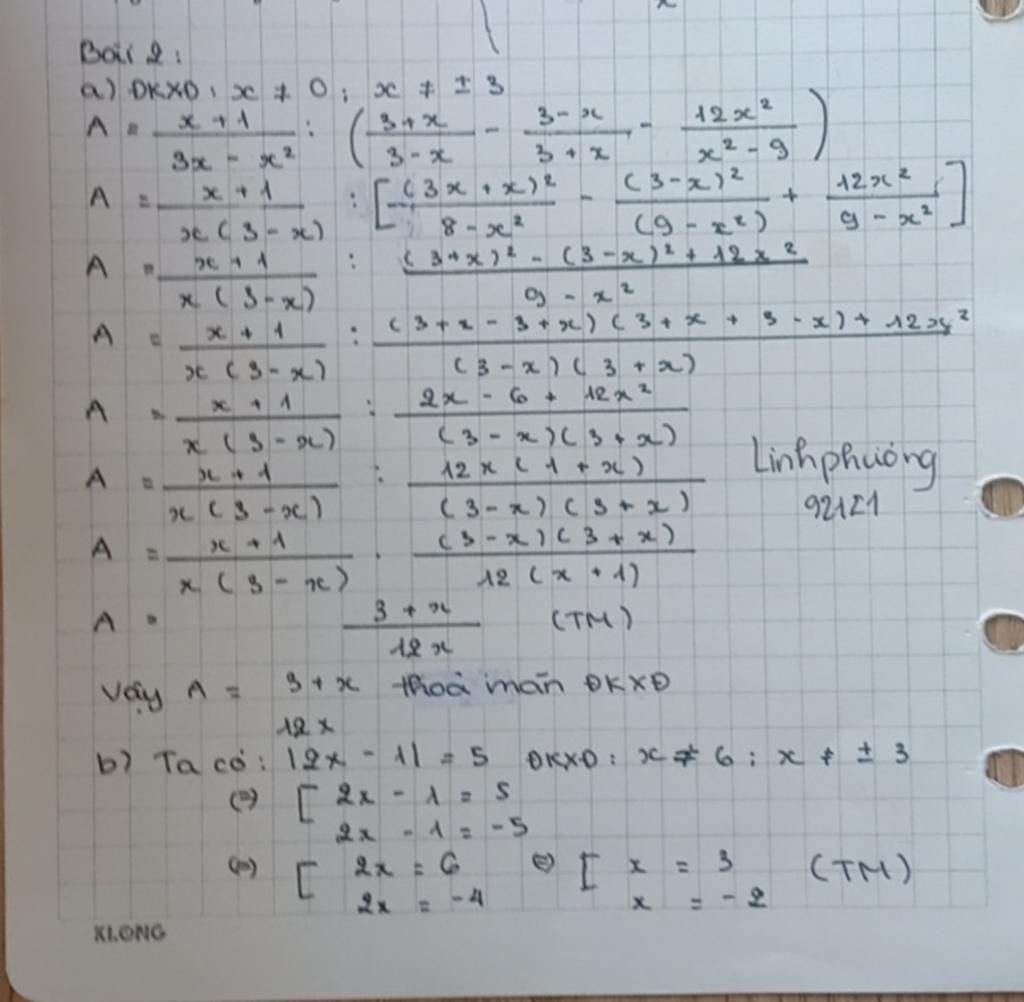 Bài 2:
a) ĐKXĐ: x ≠ 0; x ≠ ± 3
A = (x + 1)/(3x - x²) : ((3 + x)/(3 - x) - (3 - x)/(3 + x) - 12x²/(x² - 9))
A = (x + 1)/(x(3 - x)) : [(3x + x)²/(8 - x²) - (3 - x)²/(9 - x²) + 12x²/(9 - x²)]
A = (x + 1)/(x(3 - x)) : ((3 + x)² - (3 - x)² + 12x²)/(9 - x²)
A = (x + 1)/(x(3 - x)) : ((3 + x - 3 + x)(3 + x + 3 - x) + 12x²)/((3 - x)(3 + x))
A = (x + 1)/(x(3 - x)) : (2x - 6 + 12x²)/((3 - x)(3 + x))
A = (x + 1)/(x(3 - x)) : (12x(1 + x))/((3 - x)(3 + x))
Linhphương
92121
A = (x + 1)/(x(3 - x)) . ((3 - x)(3 + x))/(12(x + 1))
A = (3 + x)/(12x) (TM)
Vậy A = (3 + x)/(12x) thoả mãn ĐKXĐ
b) Ta có: |2x - 1| = 5 ĐKXĐ: x ≠ 6; x ≠ ± 3
(=) [ 2x - 1 = 5
2x - 1 = -5
(=) [ 2x = 6 (=) [ x = 3 (TM)
2x = -4 x = -2
KLONG